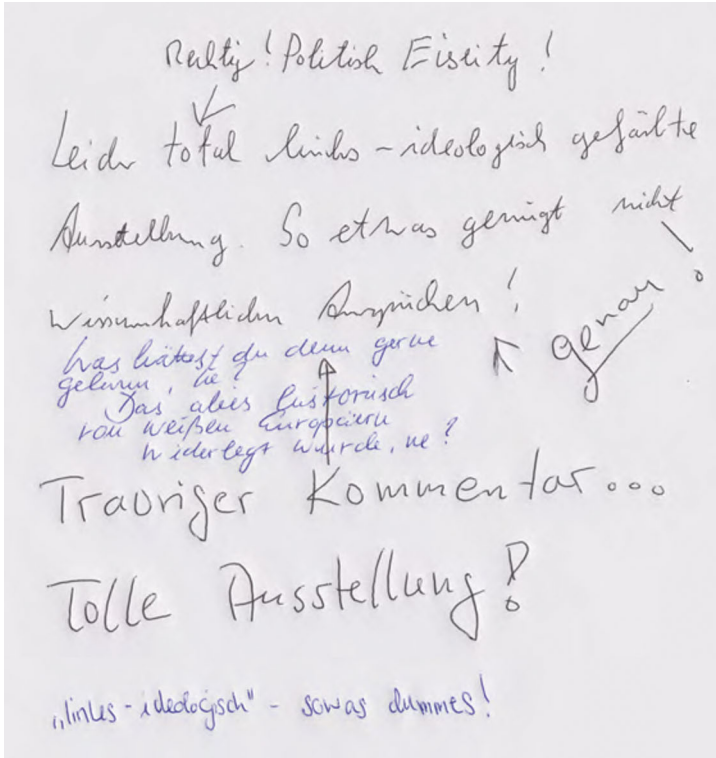 Richtig! Politisch Einseitig!
Leider total links-ideologisch gefärbte
Ausstellung. So etwas genügt nicht
wissenschaftlichen Ansprüchen!
genau!
Was hättest du denn gerne
gelesen, he?
Das alles historisch
von weißen Europäern
widerlegt wurde, ne?
Trauriger Kommentar...
Tolle Ausstellung!
„links-ideologisch" - sowas dummes!